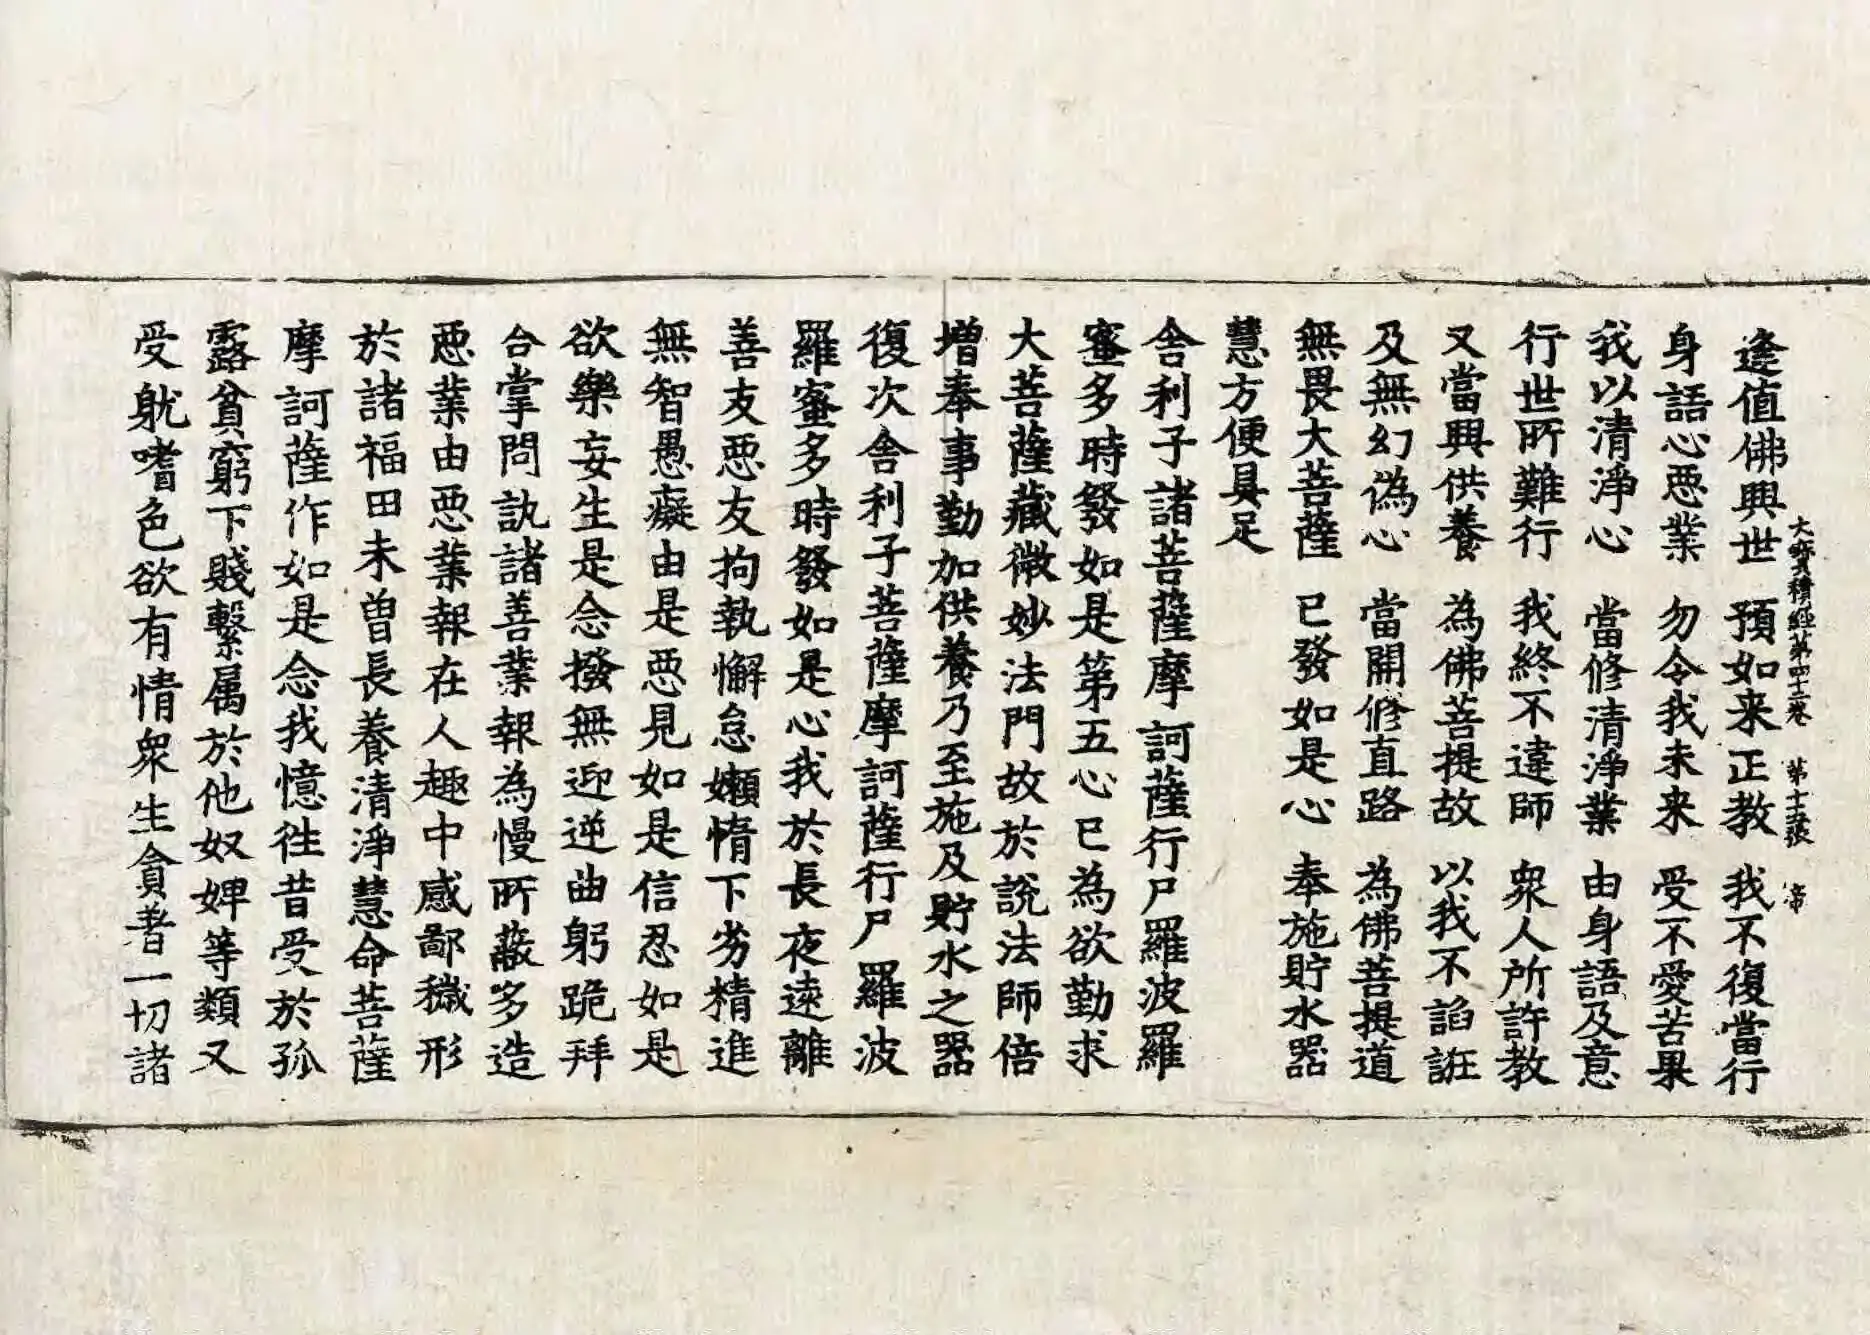 大寶積經第四十二卷 第十五張 帝
逢值佛興世 預如来正教 我不復當行
身語心惡業 勿令我未来 受不愛苦果
我以清淨心 當修清淨業 由身語及意
行世所難行 我終不違師 眾人所許教
又當興供養 為佛菩提故 以我不諂誑
及無幻偽心 當開修直路 為佛菩提道
無畏大菩薩 已發如是心 奉施貯水器
慧方便具足
舍利子諸菩薩摩訶薩行尸羅波羅
蜜多時發如是第五心已為欲勤求
大菩薩藏微妙法門故於說法師倍
增奉事勤加供養乃至施及貯水之器
復次舍利子菩薩摩訶薩行尸羅波
羅蜜多時發如是心我於長夜遠離
善友惡友拘執懈怠嬾惰下劣精進
無智愚癡由是惡見如是信忍如是
欲樂妄生是念撥無迎逆曲躬跪拜
合掌問訊諸善業報為慢所蔽多造
惡業由惡業報在人趣中感鄙穢形
於諸福田未曾長養清淨慧命菩薩
摩訶薩作如是念我憶往昔受於孤
露貧窮下賤繫属於他奴婢等類又
受躭嗜色欲有情眾生貪著一切諸